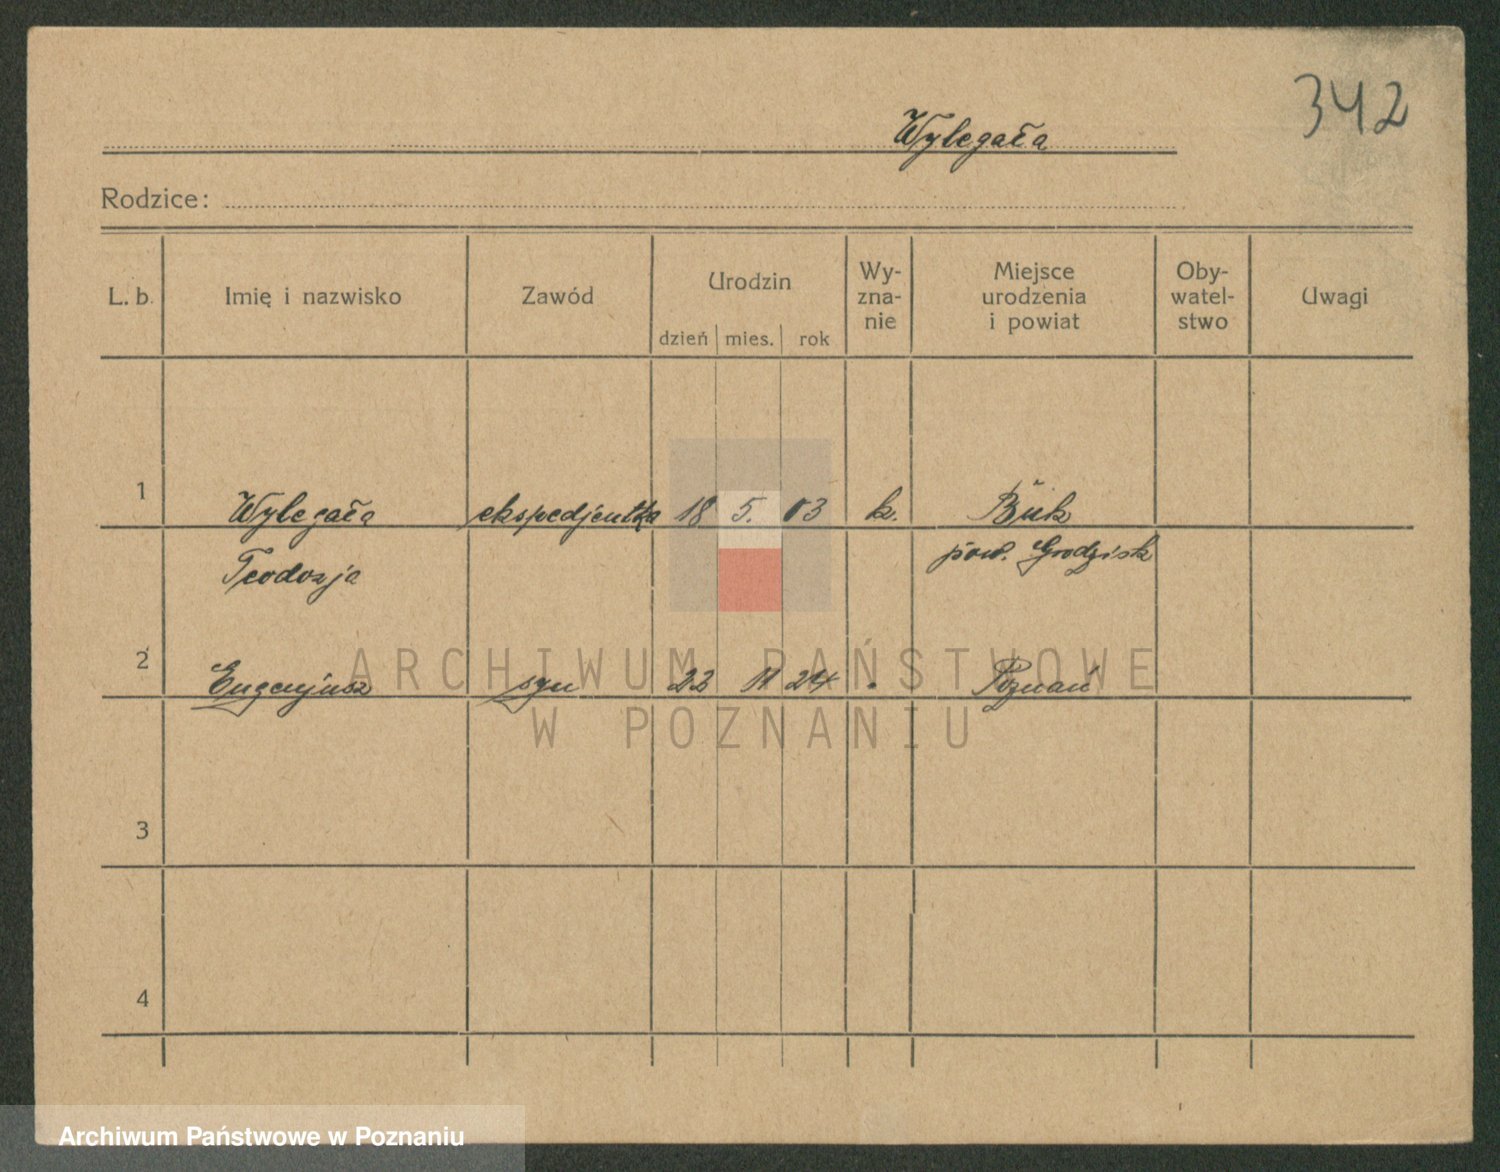 342
Wylegała
Rodzice:
L. b. Imię i nazwisko Zawód Urodzin Wy-zna-nie Miejsce urodzenia i powiat Oby-watel-stwo Uwagi
dzień mies. rok
1 Wylegała ekspedjentka 18 5. 03 k. Buk
Teodozja pow. Grodzisk
2 Eugenjusz syn 22 11 24 . Poznań
ARCHIWUM PAŃSTWOWE
W POZNANIU
3
4
Archiwum Państwowe w Poznaniu